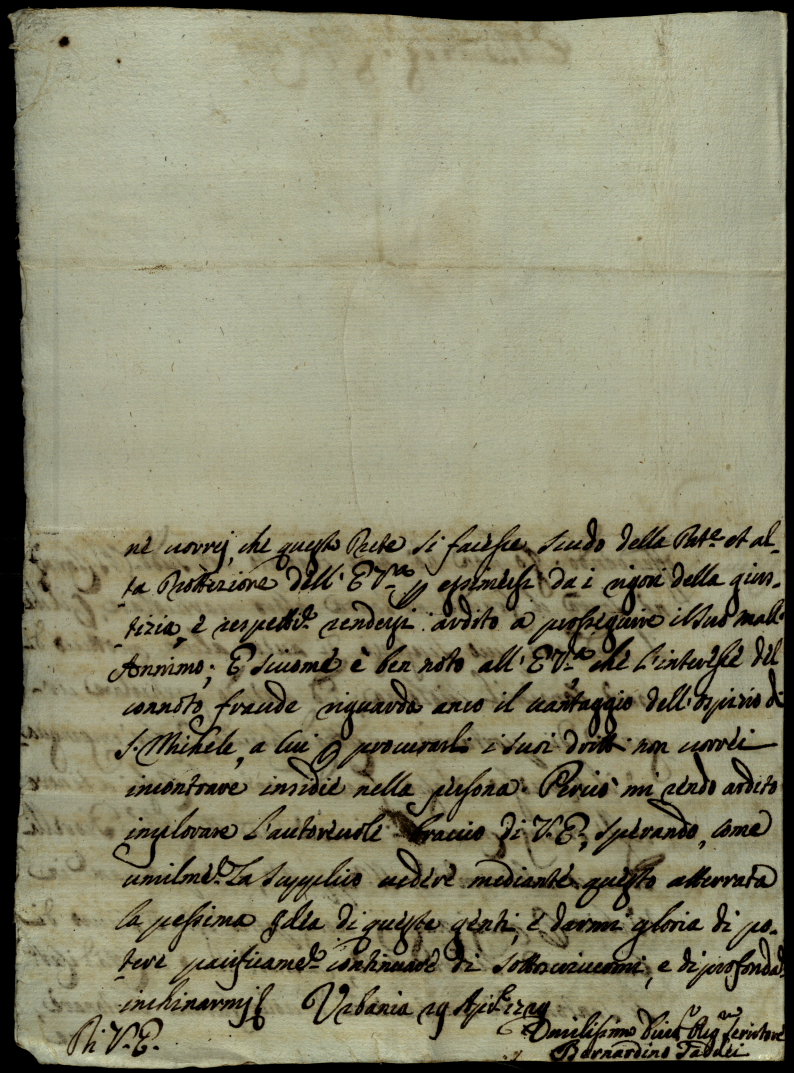 né vorrej, che questo Prete si facesse scudo della Pat.e et al-
ta Prottezione dell'E.V.ra esimersi da i rigori della gius-
tizia, e respetti.te rendersi ardito a prosseguire il suo mall'
Annimo; E siccome è ben noto all'E.V.ra che l'interesse del
connoto fraude riguarda anco il vantaggio dell'ospizio di
S. Michele, a cui procurarli i suoi dritti non vorrei
incontrare insidie nella persona. Perciò mi rendo ardito
implorare l'autorevole braccio di V.E., sperando, come
umilme.te La supplico vedere mediante questo atterrata
la pessima Idea di queste genti, e darmi gloria di po-
tere pacificame.te continuare di sottoscrivermi, e di profonda.te
inchinarmj Urbania 29 Ap.le
Di V.E.
Umilissimo Div.mo Obg.mo servitore
Bernardino Taddei